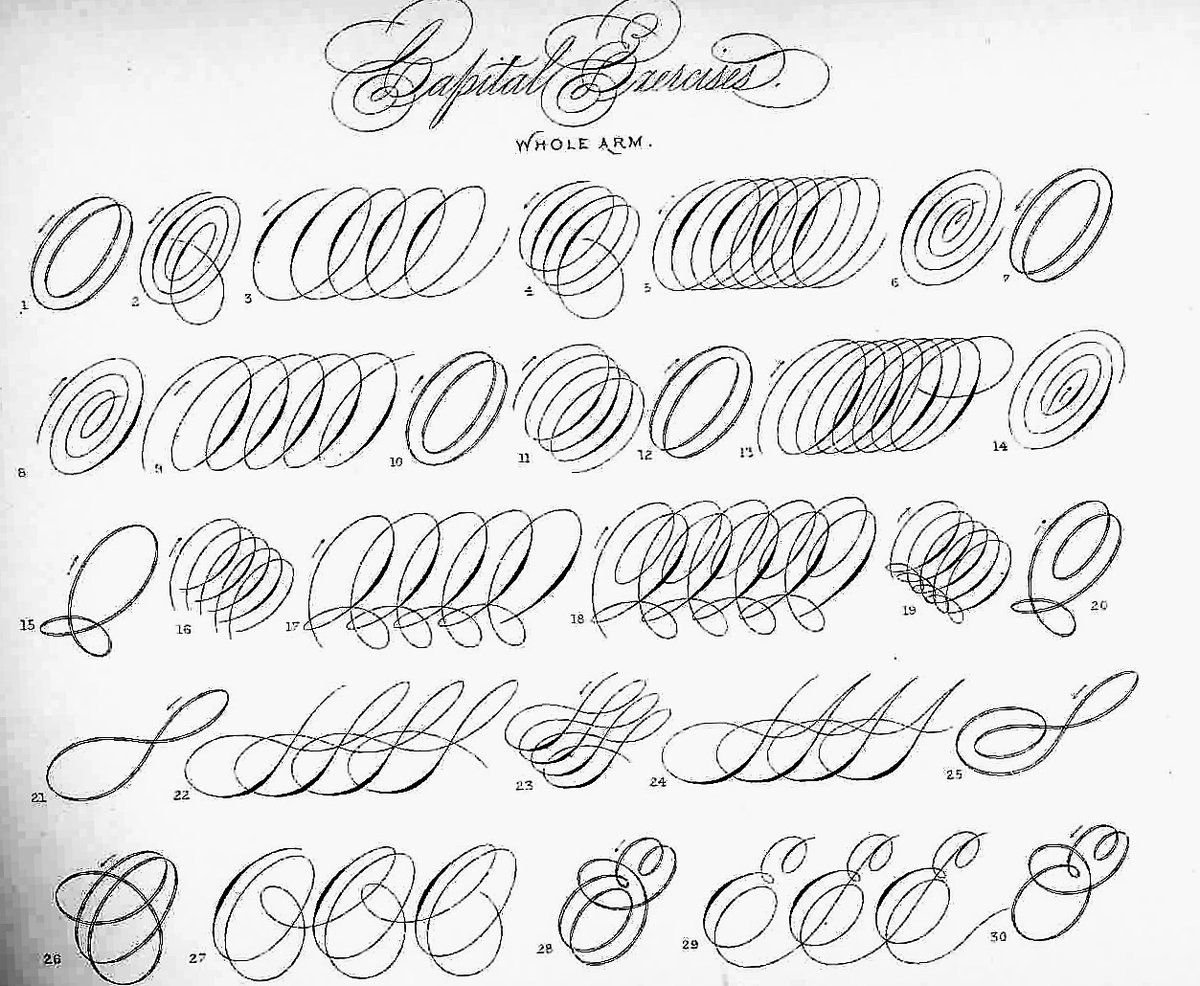 Capital Exercises.
WHOLE ARM.
1 2 3 4 5 6 7
8 9 10 11 12 13 14
15 16 17 18 19 20
21 22 23 24 25
26 27 28 29 30